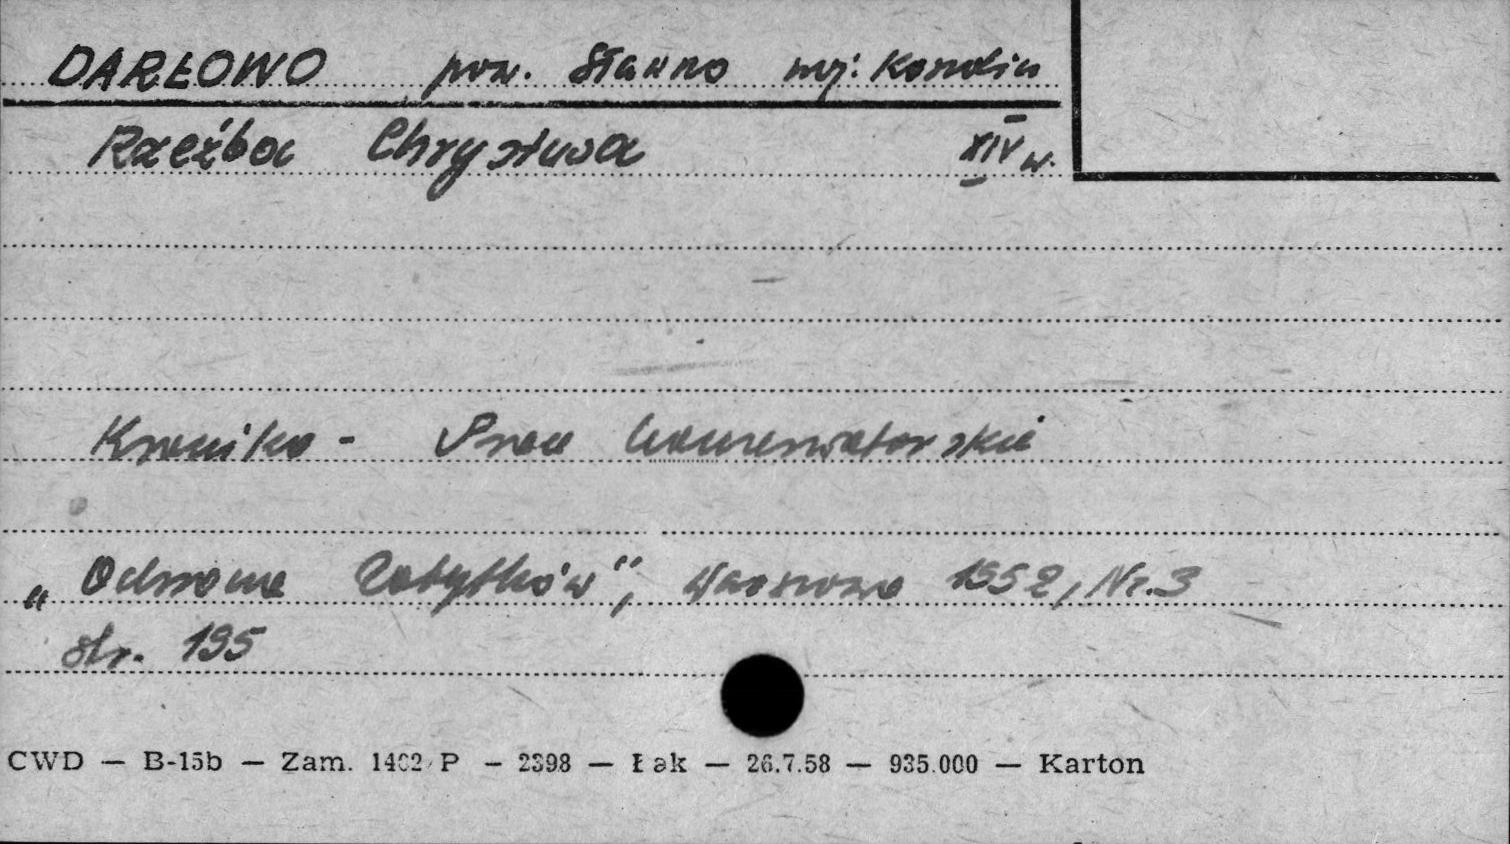 DARŁOWO pow. Sławno woj: Koszalin
Rzeźba Chrystusa XIV w.
Kronika - Prace konserwatorskie
„Ochrona Zabytków", Warszawa 1952, Nr. 3
str. 195
CWD — B-15b — Zam. 1402/P — 2398 — Łak — 26.7.58 — 935.000 — Karton